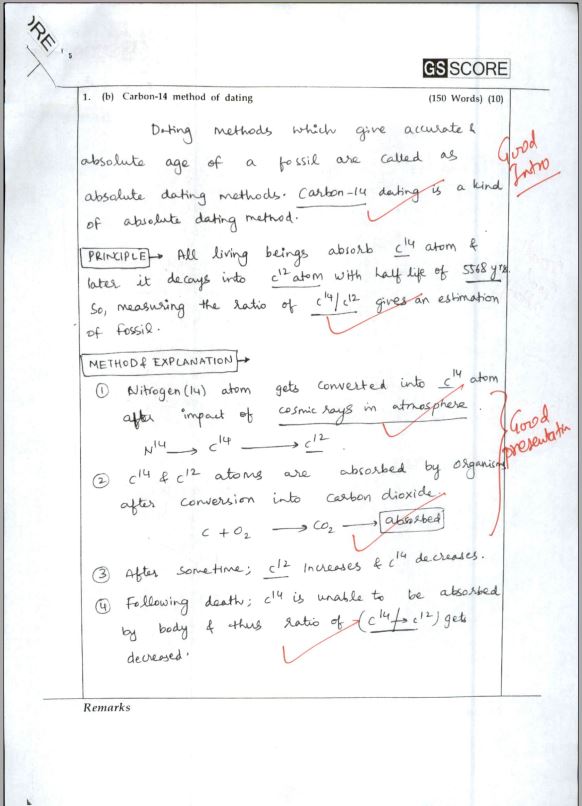 ORE
GS SCORE
1. (b) Carbon-14 method of dating (150 Words) (10)
Dating methods which give accurate &
absolute age of a fossil are called as
absolute dating methods. Carbon-14 dating is a kind
of absolute dating method.
Good
Intro
PRINCIPLE → All living beings absorb C14 atom &
later it decays into C12 atom with half life of 5568 yrs.
So, measuring the ratio of C14/C12 gives an estimation
of fossil.
METHOD & EXPLANATION →
① Nitrogen(14) atom gets converted into C14 atom
after impact of cosmic rays in atmosphere.
N14 → C14 → C12.
② C14 & C12 atoms are absorbed by organisms
after conversion into carbon dioxide.
C + O2 → CO2 → absorbed
Good
presentatin
③ After sometime; C12 increases & C14 decreases.
④ Following death; C14 is unable to be absorbed
by body & thus ratio of (C14 → C12) gets
decreased.
Remarks